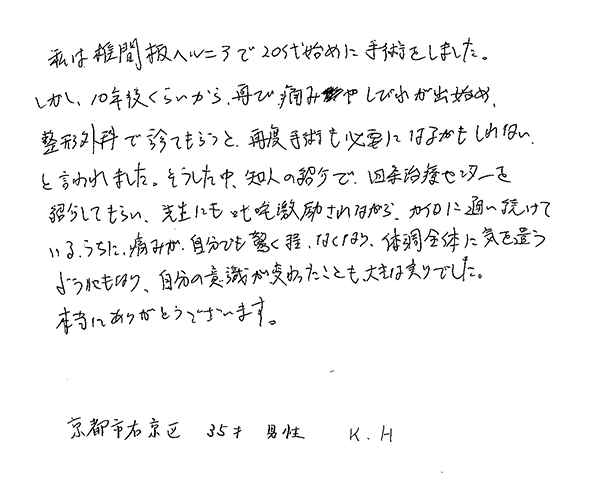 私は椎間板ヘルニアで20代始めに手術をしました。
しかし、10年後くらいから、再び痛みや しびれが出始め、
整形外科で診てもらうと、再度手術も必要になるかもしれない、
と言われました。そうした中、知人の紹介で、四条治療センターを
紹介してもらい、先生にも叱咤激励されながら、カイロに通い続けて
いる、うちに、痛みが、自分でも驚く程、なくなり、体調全体に気を遣う
ようにもなり、自分の意識が変わったことも、大きな実りでした。
本当にありがとうございます。
京都市右京区 35才 男性 K.H